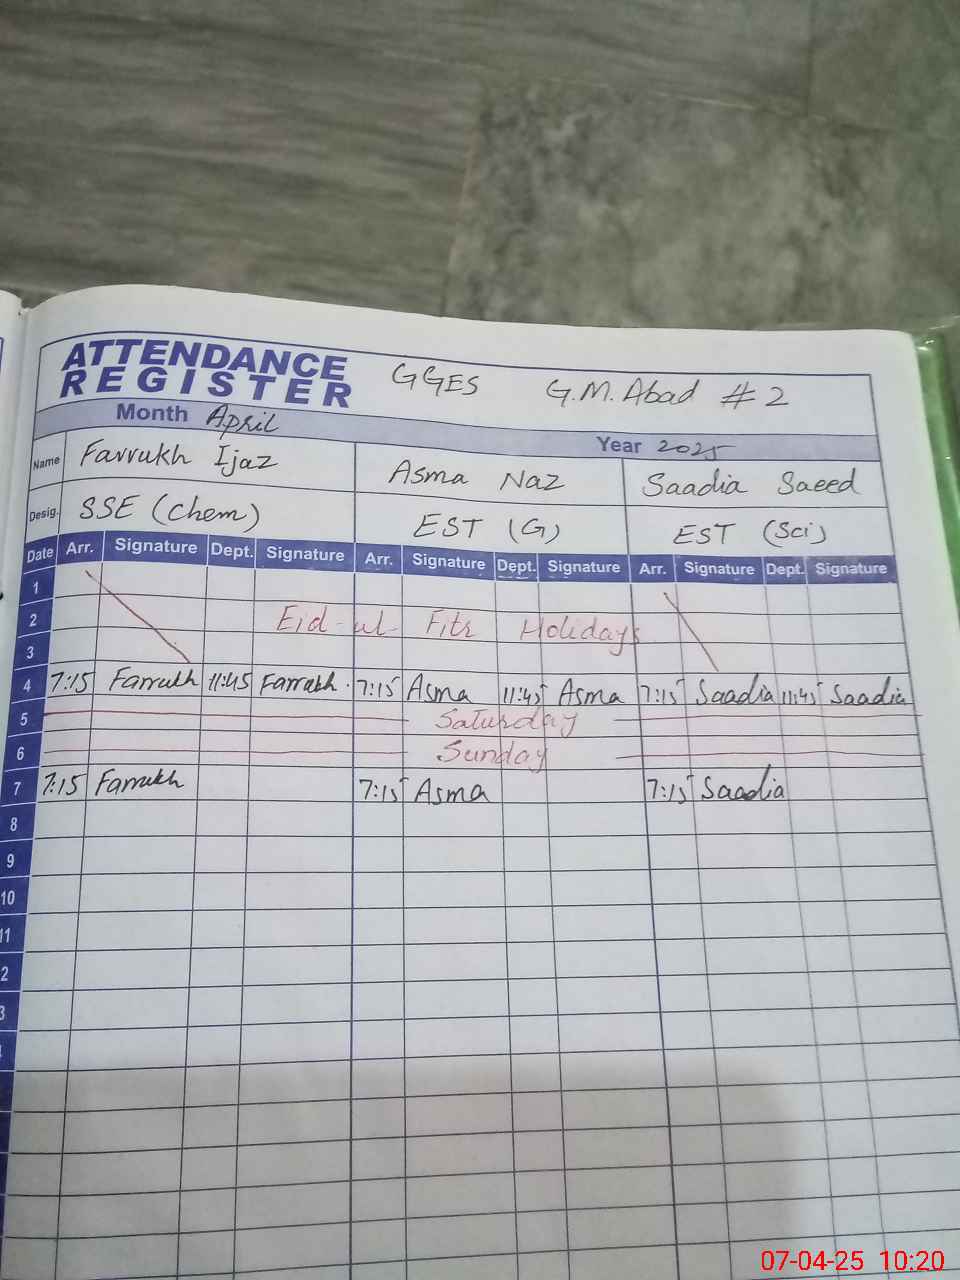 ATTENDANCE
REGISTER
GGES G.M. Abad # 2
Month April
Year 2025
Name Farrukh Ijaz Asma Naz Saadia Saeed
Desig. SSE (Chem) EST (G) EST (Sci)
Date Arr. Signature Dept. Signature Arr. Signature Dept. Signature Arr. Signature Dept. Signature
1
2 Eid-ul-Fitr Holidays
3
4 7:15 Farrukh 11:45 Farrukh 7:15 Asma 11:45 Asma 7:15 Saadia 11:45 Saadia
5 Saturday
6 Sunday
7 7:15 Farrukh 7:15 Asma 7:15 Saadia
8
9
10
11
2
3
07-04-25 10:20